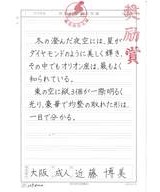 奨励賞
冬の澄んだ夜空には、星が
ダイヤモンドのように美しく輝き、
その中でもオリオン座は、最もよく
知られている。
東の空に縦3個が一際明るく
光り、豪華で均整の取れた形は、
一目で分かる。
大阪 成人 近藤博美